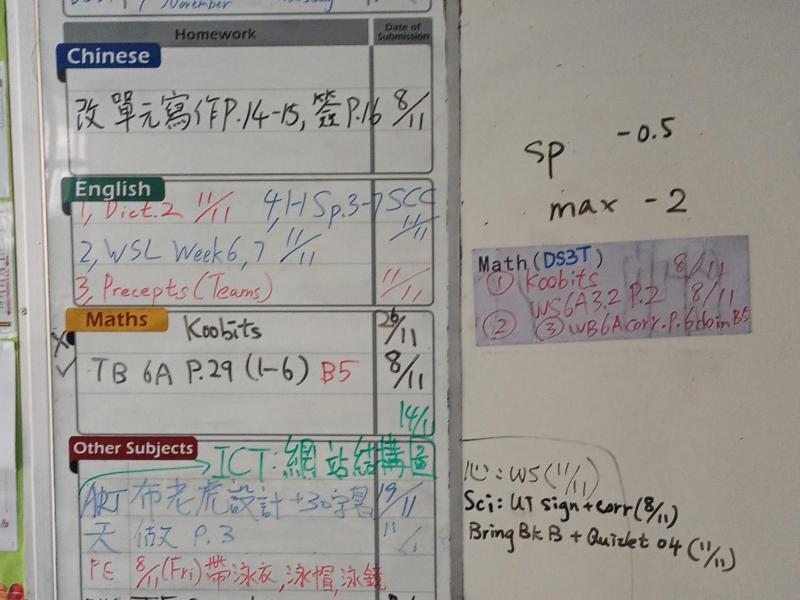 November
Homework
Date of Submission
Chinese
改單元寫作P.14-15, 簽P.16 8/11
English
1, Dict.2 11/11 4, HSp.3-7 SCC 11/11
2, WSL Week 6, 7 11/11
3, Precepts (Teams) 11/11
Maths
Koobits 26/11
TB 6A P.29 (1-6) B5 8/11
14/11
Other Subjects
ICT: 網站結構圖
ART 布老虎設計+30字 19/11
天 做 P.3 11
PE 8/11 (Fri) 帶泳衣, 泳帽, 泳鏡
sp -0.5
max -2
Math (DS3T)
① Koobits 8/11
② WS6A3.2 P.2 8/11
③ WB6A corr. P.6 do in B5
心: WS (11/11)
Sci: UT sign + corr (8/11)
Bring Bk B + Quizlet 04 (11/11)